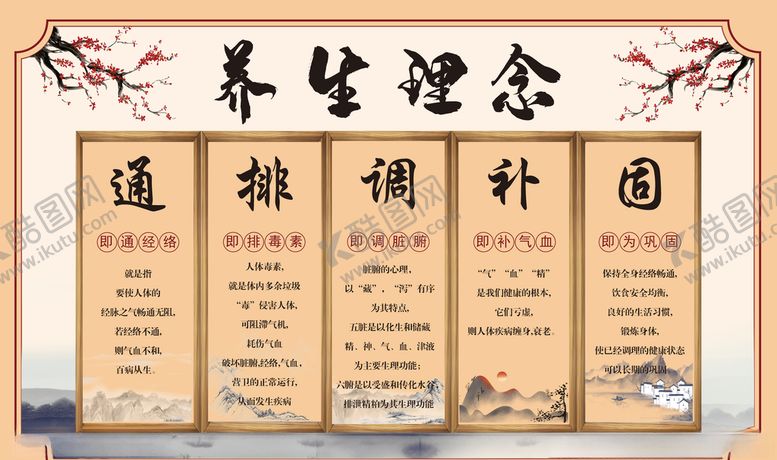 养生理念
通
即通经络
就是指
要使人体的
经脉之气畅通无阻,
若经络不通,
则气血不和,
百病从生。
排
即排毒素
人体毒素,
就是体内多余垃圾
“毒”侵害人体,
可阻滞气机,
耗伤气血
破坏脏腑,经络,气血,
营卫的正常运行,
从而发生疾病
调
即调脏腑
脏腑的心理,
以“藏”,“泻”有序
为其特点,
五脏是以化生和储藏
精、神、气、血、津液
为主要生理功能;
六腑是以受盛和传化水谷,
排泄精粕为其生理功能
补
即补气血
“气”“血”“精”
是我们健康的根本,
它们亏虚,
则人体疾病缠身,衰老。
固
即为巩固
保持全身经络畅通,
饮食安全均衡,
良好的生活习惯,
锻炼身体,
使已经调理的健康状态
可以长期的巩固
酷图网
www.ikutu.com